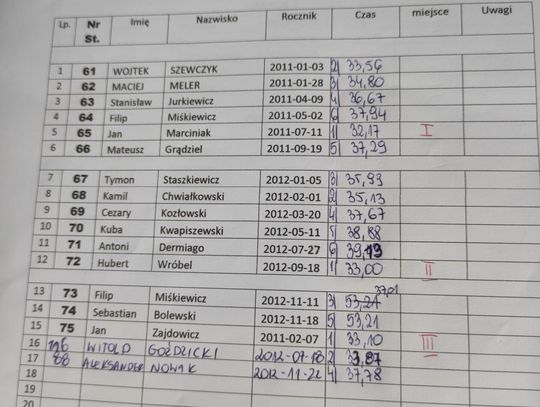 Lp. Nr St. Imię Nazwisko Rocznik Czas miejsce Uwagi
1 61 WOJTEK SZEWCZYK 2011-01-03 2) 33,56
2 62 MACIEJ MELER 2011-01-28 3) 34,80
3 63 Stanisław Jurkiewicz 2011-04-09 4) 36,67
4 64 Filip Miśkiewicz 2011-05-02 6) 37,94
5 65 Jan Marciniak 2011-07-11 1) 32,17 I
6 66 Mateusz Grądziel 2011-09-19 5) 37,29
7 67 Tymon Staszkiewicz 2012-01-05 3) 35,93
8 68 Kamil Chwiałkowski 2012-02-01 2) 35,13
9 69 Cezary Kozłowski 2012-03-20 4) 37,67
10 70 Kuba Kwapiszewski 2012-05-11 5) 38,88
11 71 Antoni Dermiago 2012-07-27 6)
12 72 Hubert Wróbel 2012-09-18 1) 33,00 II
37,01
13 73 Filip Miśkiewicz 2012-11-11 3) 53,21
14 74 Sebastian Bolewski 2012-11-18 5) 53,21
15 75 Jan Zajdowicz 2011-02-07 1) 33,10 III
16 WITOLD GOŹDZICKI 2012-07-18 2)
17 88 ALEKSANDER NOWAK 2012-11-22 4) 37,78
18
19
20